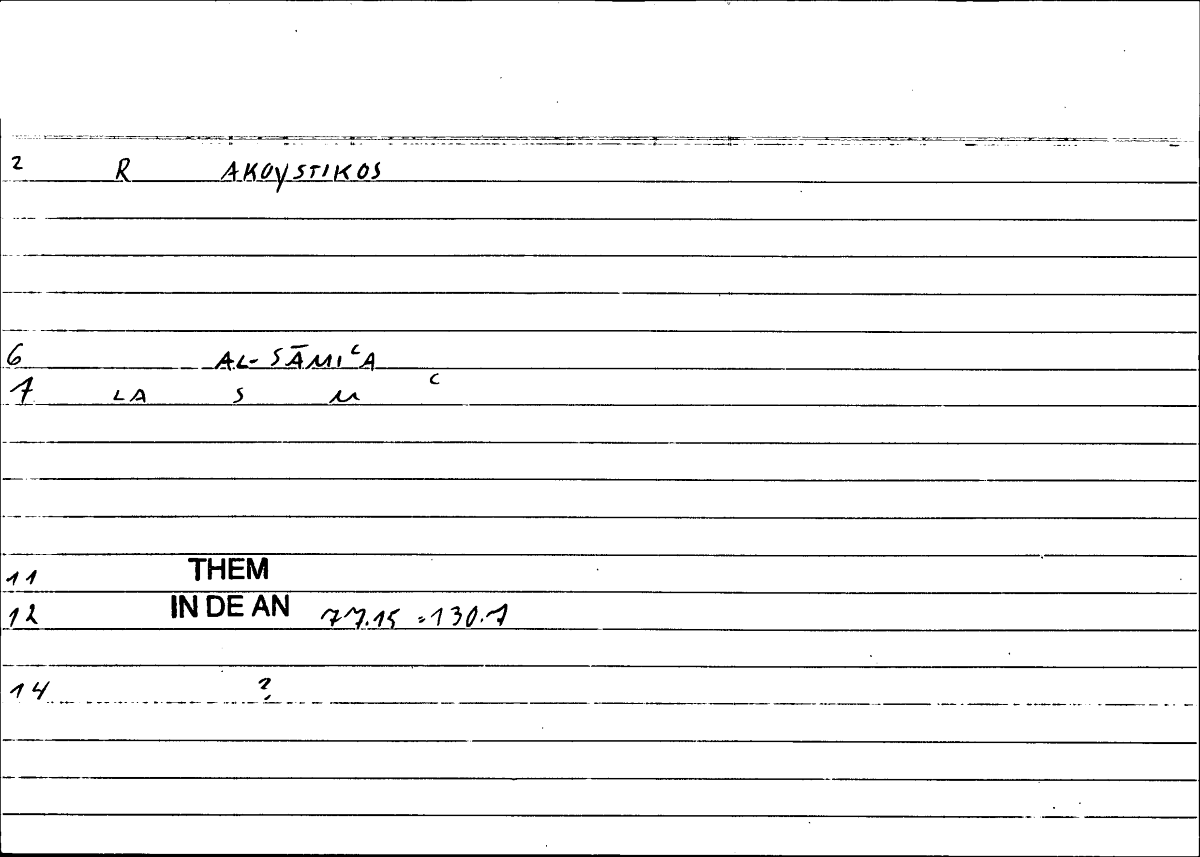 2 R AKOYSTIKOS
6 AL-SĀMIʿA
7 LA S M ʿ
11 THEM
12 IN DE AN 77.15 = 130.7
14 ?